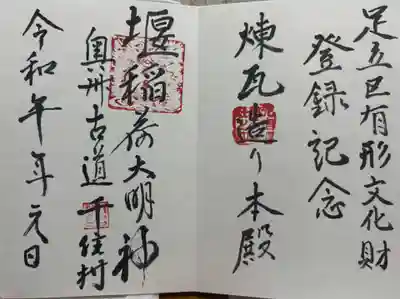 足立区有形文化財
登録記念
煉瓦造り本殿
堰稲荷大明神
奥州古道千住村
令和年年元日